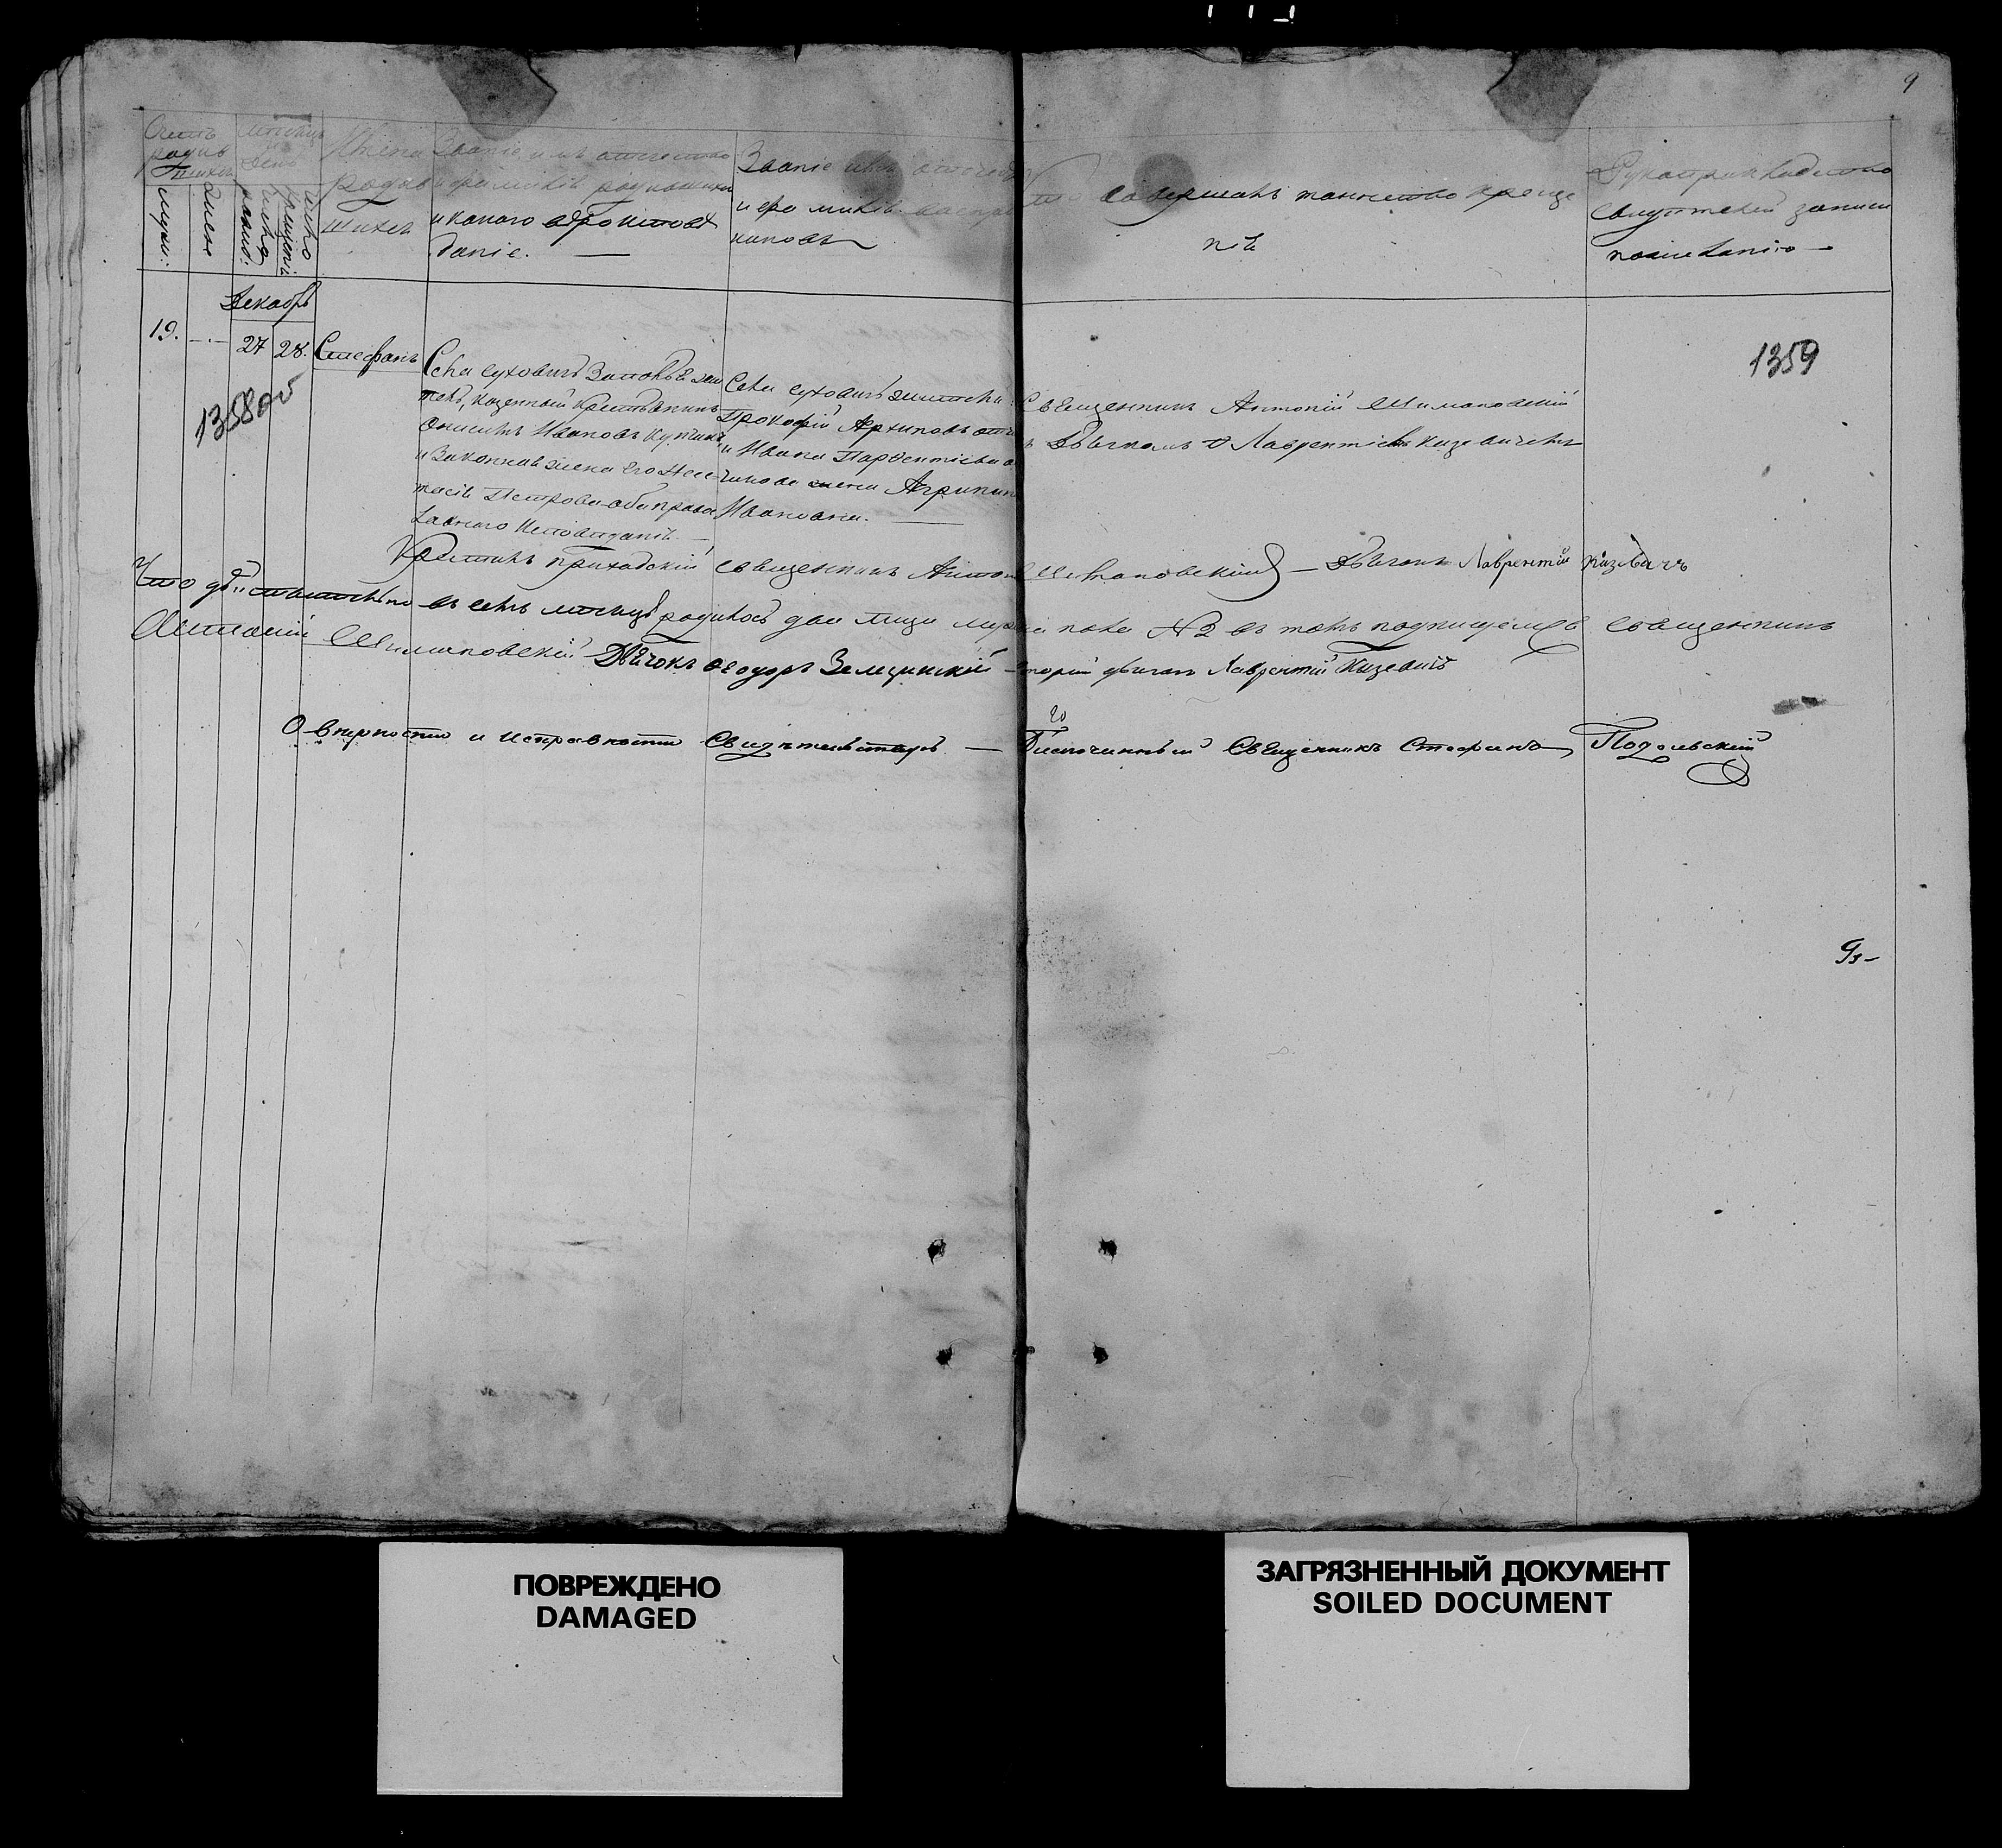 9
Счетъ родив шихся
муж:
женс
Мѣсяцъ и день
число рожд:
число крещенія
Имена родив шихся
Званіе имя отчество
и фамилія родившихъ
и какого вѣроисповѣ
данія. —
Званіе имя отчество
и фамилія воспріем
никовъ
Кто совершалъ таинство креще
нія
Рукоприкладство
свидѣтелей записи
по желанію —
Декабрь
19. — 27 28. Стефанъ
1358об
1359
Села Суховецъ
тель, казенный крестьянинъ
Онисимъ Ивановъ
и законная жена его
Петрова оба право
славного исповѣданія. —
Села Суховецъ жители
Прокофій Архиповъ
и Ивана Парфентіева
жена Агрипина
Ивановна. —
Священникъ Антоній Шимановскій
съ Дьячкомъ Лаврентіемъ Казевичемъ
Крестилъ приходскій священникъ Антоній Шимановскій — Дьячокъ Лаврентій Казевичъ
Что дѣйствительно въ семъ мѣсяцѣ родилось два лица мужеска пола № 2 въ томъ подписуемся священникъ
Антоній Шимановскій Дьячокъ Ѳеодоръ Зелинскій — вторый дьячокъ Лаврентій Казевичъ
О вѣрности и исправности свидѣтельствуетъ — Благочинный Священникъ Стефанъ Подольскій
ПОВРЕЖДЕНО
DAMAGED
ЗАГРЯЗНЕННЫЙ ДОКУМЕНТ
SOILED DOCUMENT